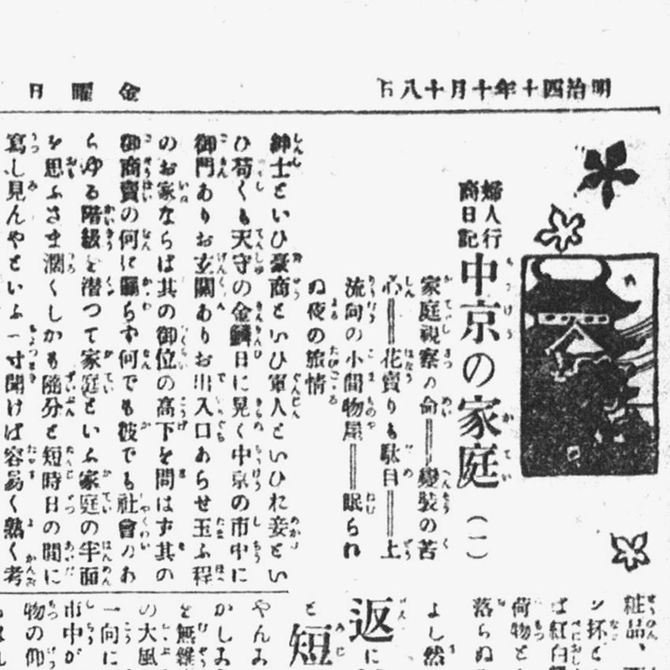 明治四十年十月十八日
金曜日
婦人行
商日記
中京の家庭
(一)
家庭視察の命══變裝の苦
心══花賣りも駄目══上
流向の小間物屋══眠られ
ぬ夜の旅情
紳士といひ豪商といひ軍人といひ妾とい
ひ苟くも天守の金鱗日に晃く中京の市中に
御門ありお玄關ありお出入口あらせ玉ふ程
のお家ならば其の御位の高下を問はず其の
御商賣の何に關らず何でも彼でも社會のあ
らゆる階級を潜つて家庭といふ家庭の半面
を思ふさま濶くしかも隨分と短時日の間に
寫し見んやといふ一寸聞けば容易く熟く考
粧品、
ば紅白
荷物と
落らぬ
よし然
返
に
と
短
やんみ
かしみ
を無雜
の大風
一向に
市中が
物の仰